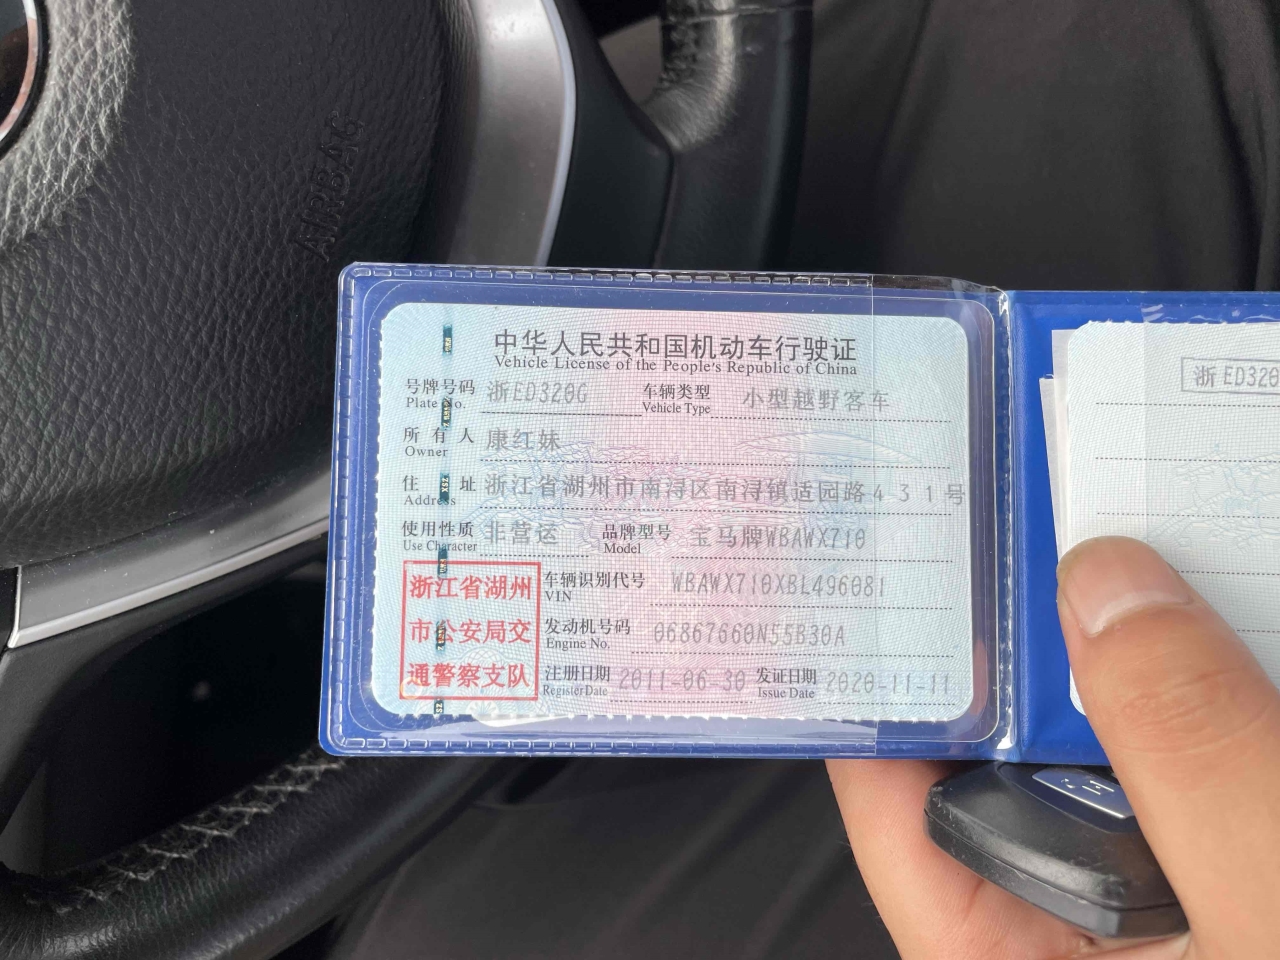 AIRBAG
中华人民共和国机动车行驶证
Vehicle License of the People's Republic of China
号牌号码 浙ED320G 车辆类型 小型越野客车
Plate No. Vehicle Type
所有人 康红妹
Owner
住址 浙江省湖州市南浔区南浔镇适园路431号
Address
使用性质 非营运 品牌型号 宝马牌WBAWX710
Use Character Model
浙江省湖州
市公安局交
通警察支队
车辆识别代号 WBAWX710XBL496081
VIN
发动机号码 06867660N55B30A
Engine No.
注册日期 2011-06-30 发证日期 2020-11-11
Register Date Issue Date
浙ED320